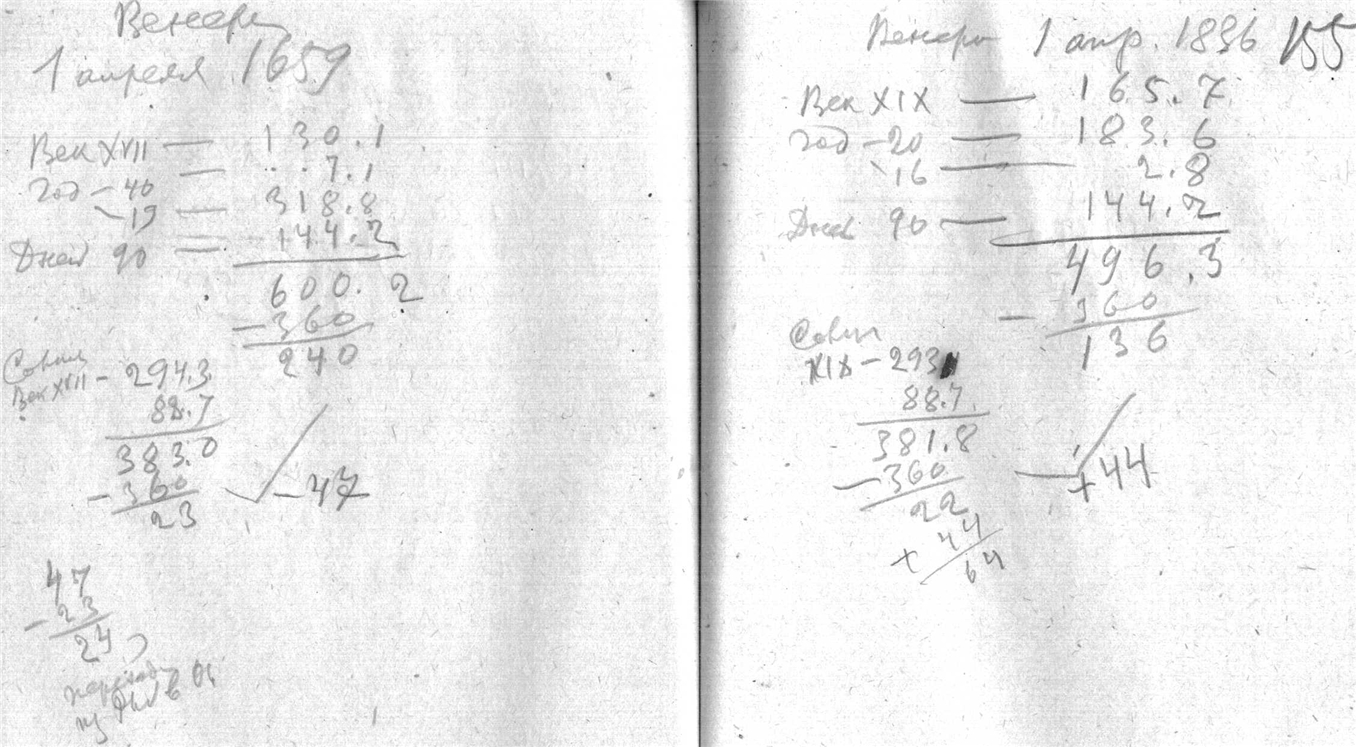 Венера
1 апреля 1659
Век XVII — 130.1
Год — 40 — 7.1
— 19 — 318.8
Дней 90 = 144.2
600.2
— 360
240
Солнце
Век XVII — 294.3
88.7
383.0
— 360
23
— 47
47
— 23
24
переход
из в
Венера 1 апр. 1836 155
Век XIX — 165.7
год — 20 — 183.6
16 — 2.8
Дней 90 — 144.2
496.3
— 360
136
Солнце
XIX — 293.1
88.7
381.8
— 360
22
+ 44
+ 44
64